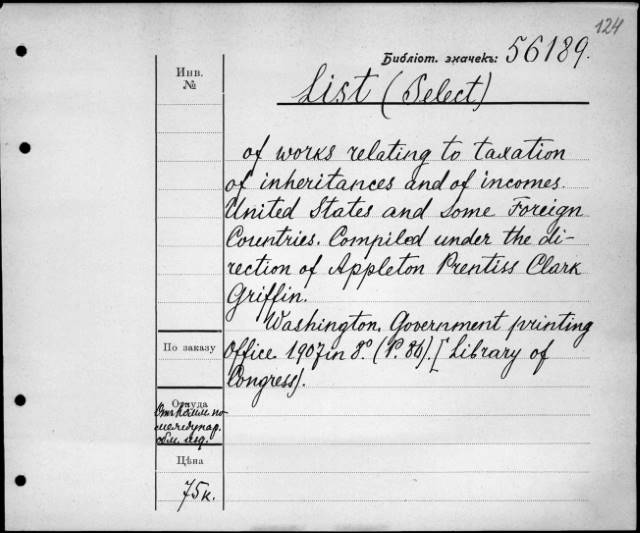 124
Библіот. значекъ: 56189.
Инв.
№
List (Select)
of works relating to taxation
of inheritances and of incomes.
United States and some Foreign
Countries. Compiled under the di-
rection of Appleton Prentiss Clark
Griffin.
Washington. Government printing
По заказу
Office. 1907 in 8º. (P. 86). [Library of
Congress].
Откуда
по
междунар.
Цѣна
75 к.